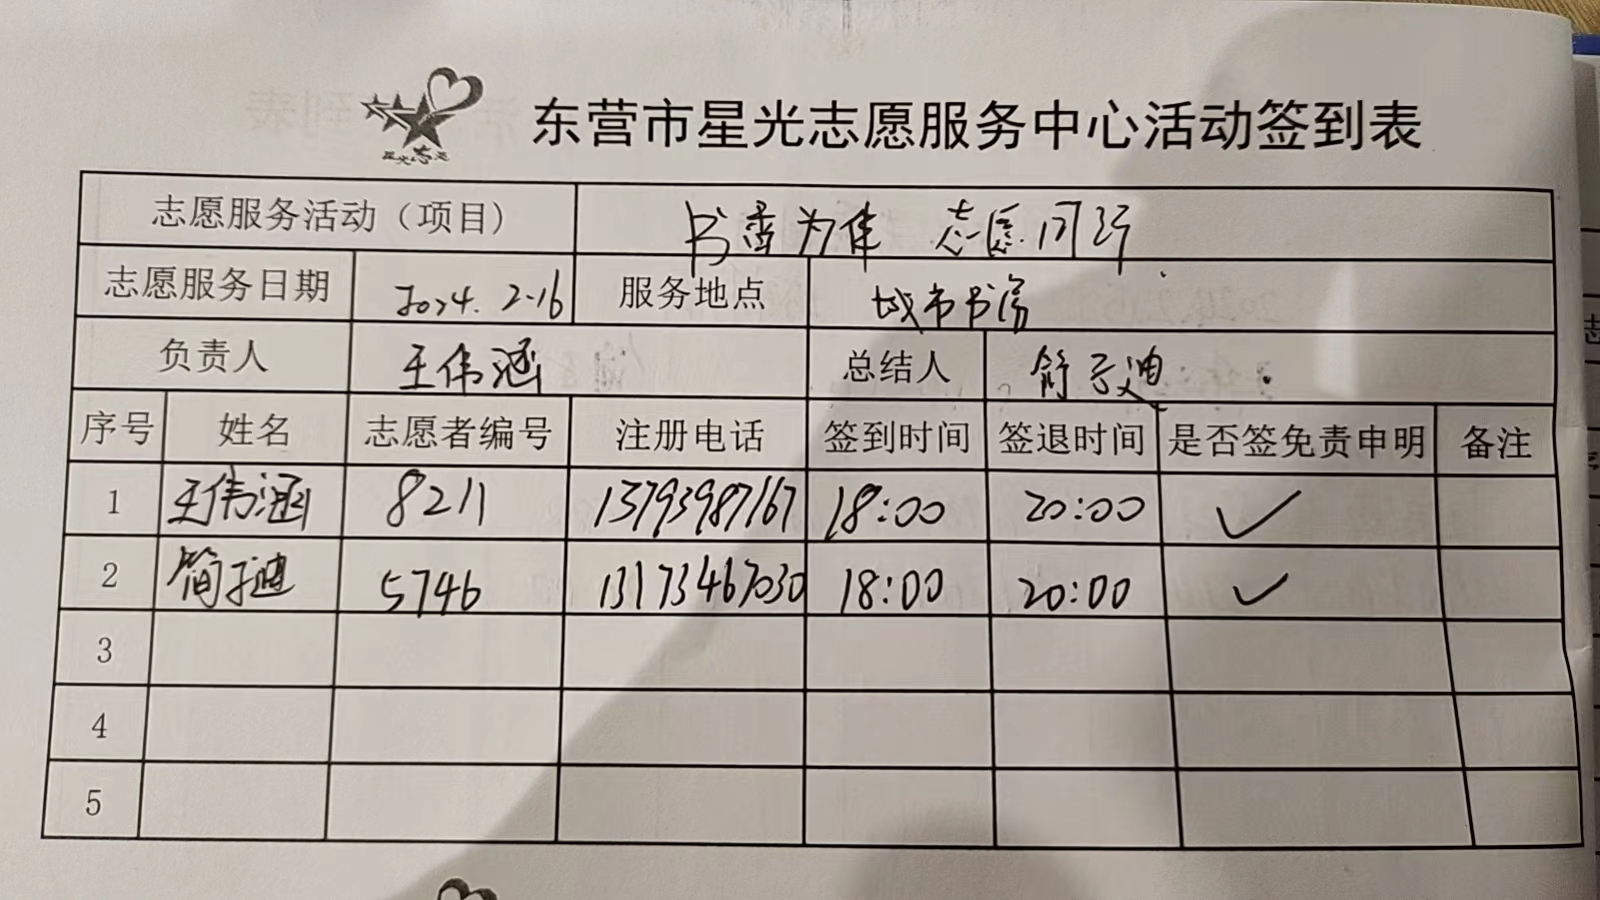 星光志愿
东营市星光志愿服务中心活动签到表
志愿服务活动（项目） 书香为伴 志愿同行
志愿服务日期 2024.2.16 服务地点 城市书房
负责人 王伟涵 总结人 子迪
序号 姓名 志愿者编号 注册电话 签到时间 签退时间 是否签免责申明 备注
1 王伟涵 8211 13793987167 18:00 20:00 ✓
2 简子迪 5746 13173467030 18:00 20:00 ✓
3
4
5